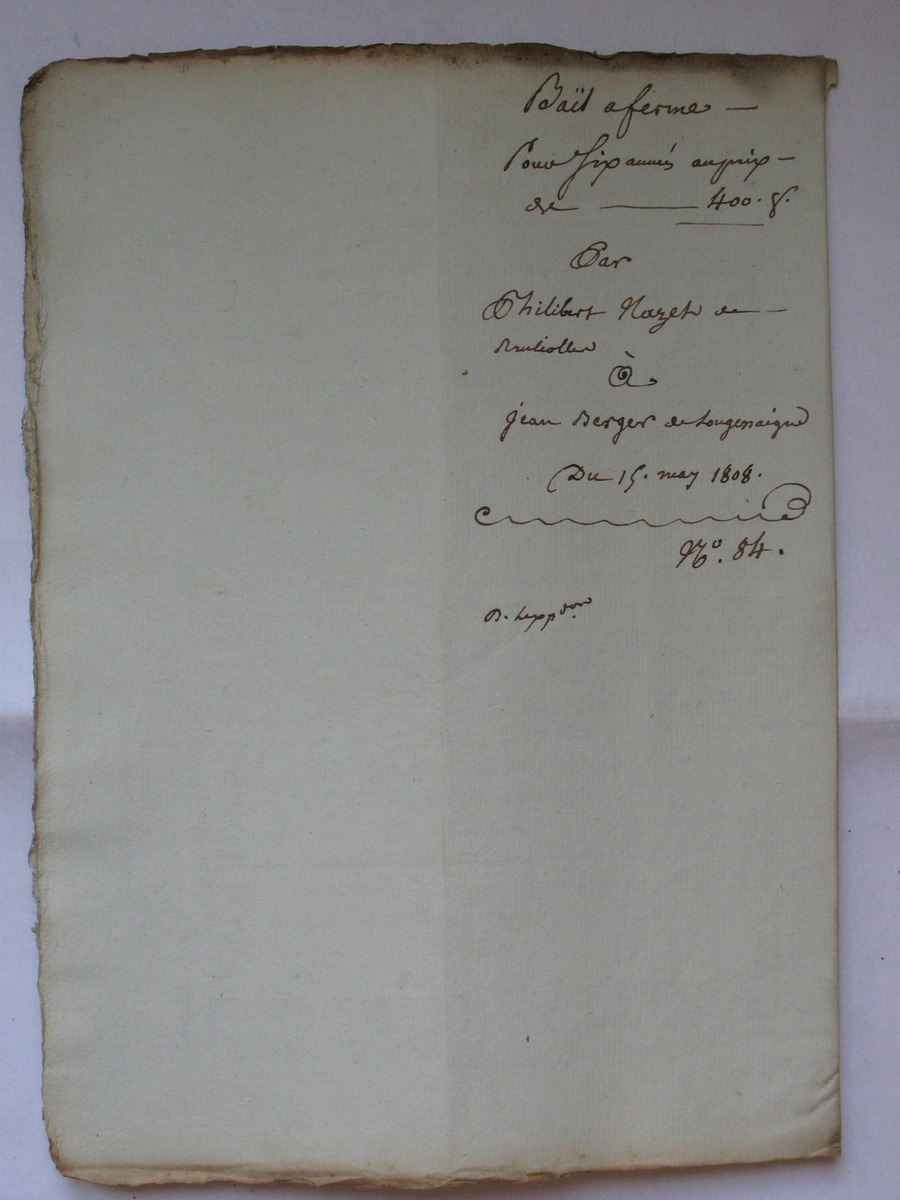 Baïl a ferme —
Pour Six années au prix —
de — 400.
Par
Philibert Nazet de —
Brulliolles
À
jean Berger de Longessaigne
Du 15. may 1808.
N°. 84.